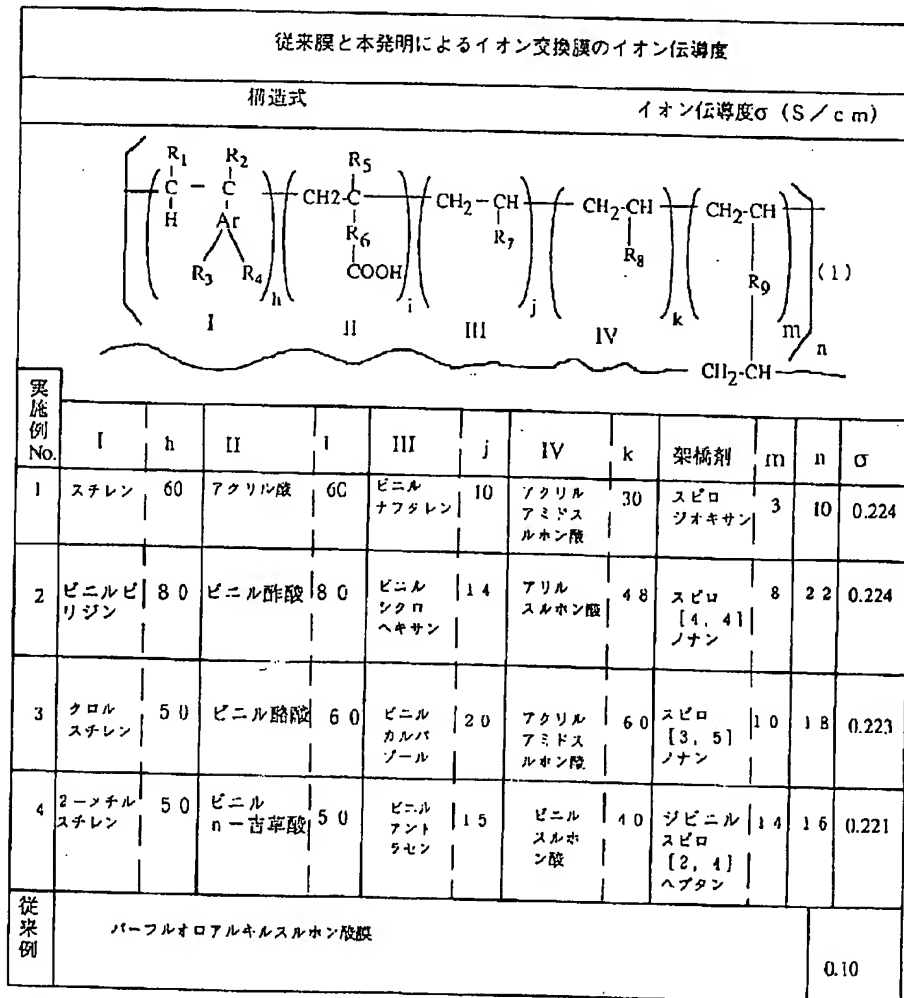 従来膜と本発明によるイオン交換膜のイオン伝導度
構造式 イオン伝導度σ (S/cm)
R1 R2 R5
C - C CH2-C CH2-CH CH2-CH CH2-CH
H Ar R6 R7 R8 R9 (1)
R3 R4 COOH
h i j k m n
I II III IV
CH2-CH
実施例No. I h II i III j IV k 架橋剤 m n σ
1 スチレン 60 アクリル酸 60 ビニルナフタレン 10 アクリルアミドスルホン酸 30 スピロジオキサン 3 10 0.224
2 ビニルピリジン 80 ビニル酢酸 80 ビニルシクロヘキサン 14 アリルスルホン酸 48 スピロ[4,4]ノナン 8 22 0.224
3 クロルスチレン 50 ビニル酪酸 60 ビニルカルバゾール 20 アクリルアミドスルホン酸 60 スピロ[3,5]ノナン 10 18 0.223
4 2-メチルスチレン 50 ビニルn-吉草酸 50 ビニルアントラセン 15 ビニルスルホン酸 40 ジビニルスピロ[2,4]ヘプタン 14 16 0.221
従来例 パーフルオロアルキルスルホン酸膜 0.10